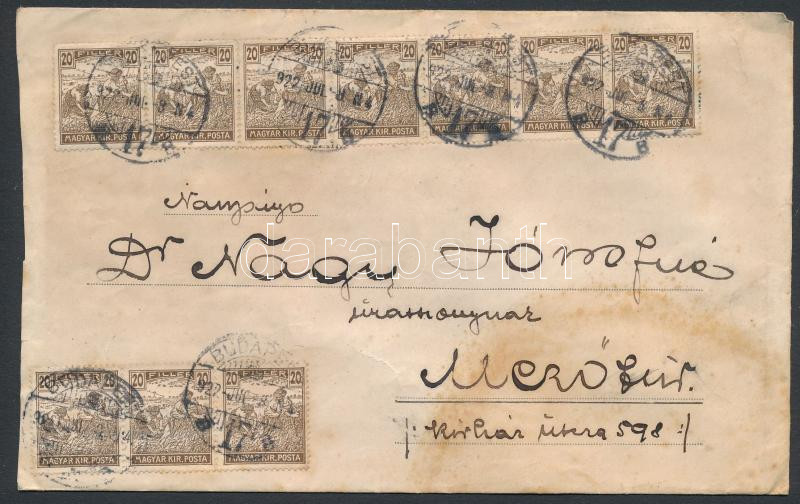 20 FILLER 20 20 FILLER 20 20 FILLER 20 20 FILLER 20 20 FILLER 20 20 FILLER 20 20 FILLER 20
MAGYAR KIR. POSTA MAGYAR KIR. POSTA MAGYAR KIR. POSTA MAGYAR KIR. POSTA MAGYAR KIR. POSTA MAGYAR KIR. POSTA MAGYAR KIR. POSTA
BUDAPEST 922 JUL
Dr Nagy Józsefné
úrasszonynak
darabanth
Mezőtúr.
Kórház útca 598
20 FILLER 20 20 FILLER 20 20 FILLER 20
MAGYAR KIR. POSTA MAGYAR KIR. POSTA MAGYAR KIR. POSTA